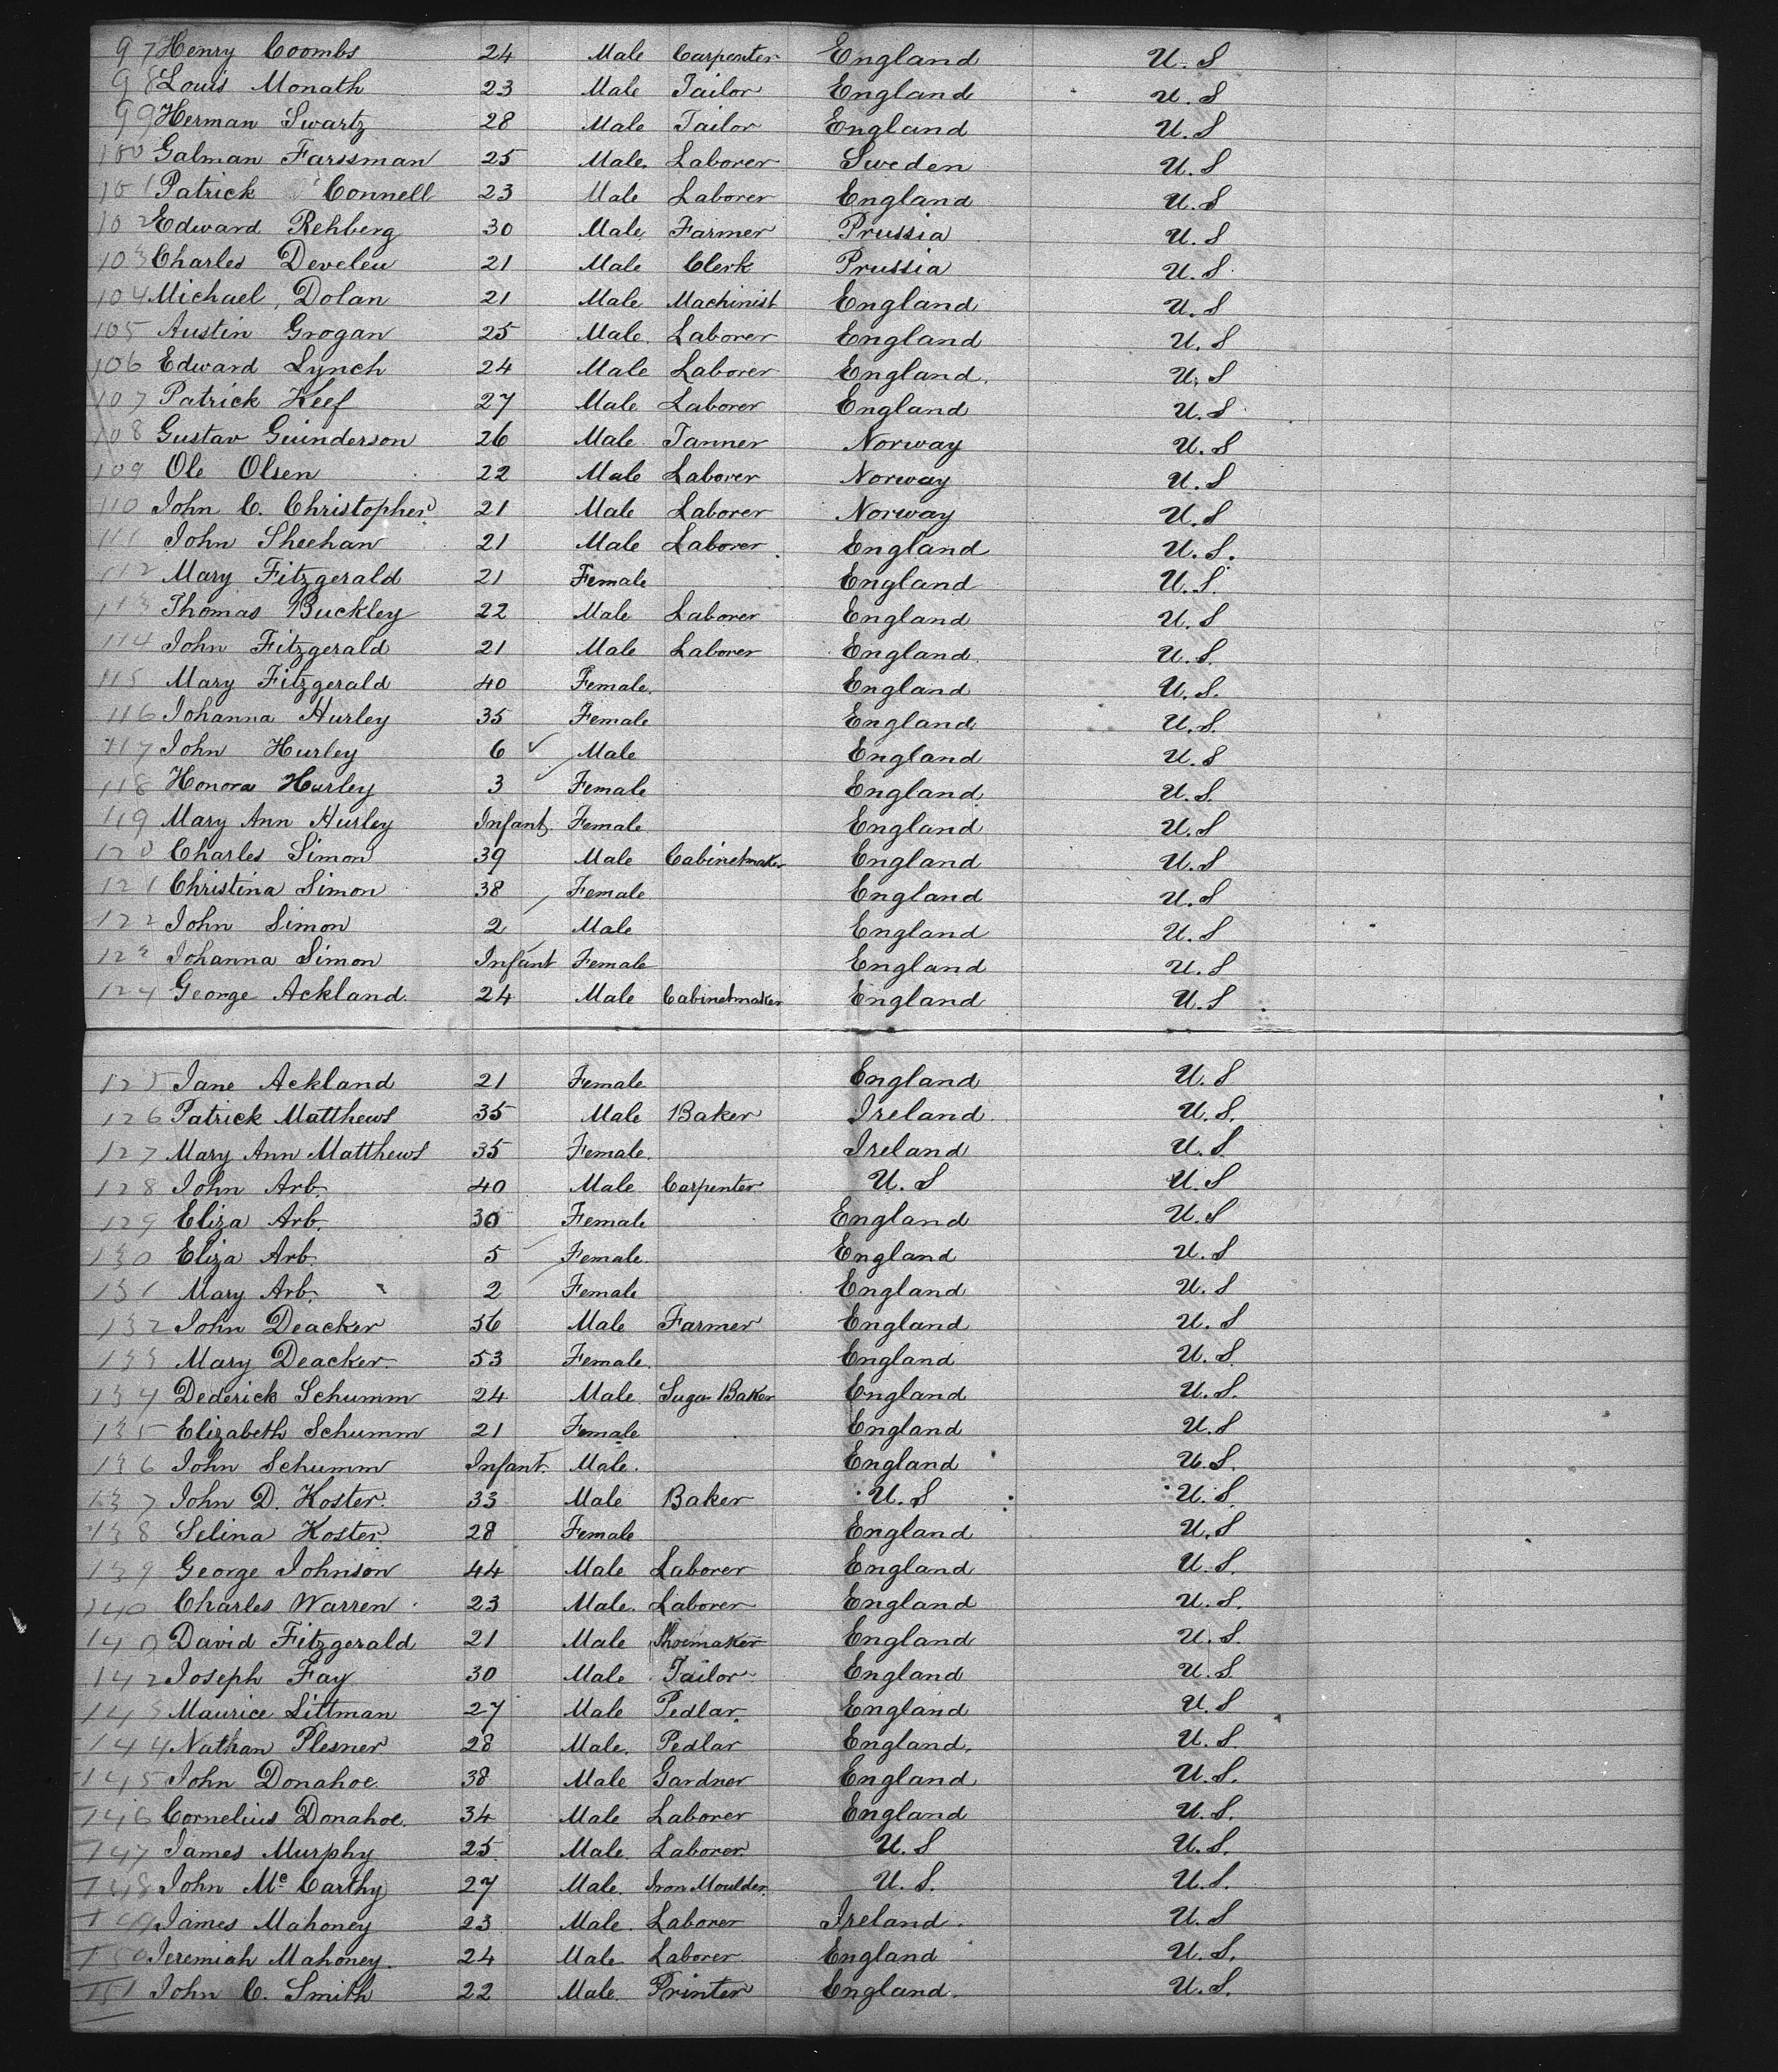 97 Henry Coombs 24 Male Carpenter England U.S
98 Louis Monath 23 Male Tailor England U.S
99 Herman Swartz 28 Male Tailor England U.S
100 Galman Farssman 25 Male. Laborer Sweden U.S
101 Patrick Connell 23 Male Laborer England U.S
102 Edward Rehberg 30 Male Farmer Prussia U.S
103 Charles Develeu 21 Male Clerk Prussia U.S.
104 Michael Dolan 21 Male Machinist England U.S
105 Austin Grogan 25 Male. Laborer England U.S
106 Edward Lynch 24 Male Laborer England. U.S
107 Patrick Keef 27 Male Laborer England U.S
108 Gustav Guinderson 26 Male Tanner Norway U.S
109 Ole Olsen 22 Male Laborer Norway U.S
110 John C. Christopher 21 Male Laborer Norway U.S
111 John Sheehan 21 Male Laborer England U.S.
112 Mary Fitzgerald 21 Female England U.S.
113 Thomas Buckley 22 Male Laborer England U.S
114 John Fitzgerald 21 Male Laborer England U.S.
115 Mary Fitzgerald 40 Female. England U.S.
116 Johanna Hurley 35 Female England U.S.
117 John Hurley 6 ✓ Male England U.S
118 Honora Hurley 3 ✓ Female England U.S.
119 Mary Ann Hurley Infant Female England U.S
120 Charles Simon 39 Male Cabinetmaker England U.S
121 Christina Simon 38 Female England U.S
122 John Simon 2 Male England U.S
123 Johanna Simon Infant Female England U.S
124 George Ackland. 24 Male Cabinetmaker England U.S
125 Jane Ackland 21 Female England U.S
126 Patrick Matthews 35 Male Baker Ireland. U.S.
127 Mary Ann Matthews 35 Female. Ireland U.S.
128 John Arb. 40 Male Carpenter U.S U.S
129 Eliza Arb. 30 Female England U.S
130 Eliza Arb. 5 Female. England U.S
131 Mary Arb. 2 Female England U.S
132 John Deacker 56 Male Farmer England U.S
133 Mary Deacker. 53 Female. England U.S.
134 Dederick Schumm 24 Male Sugar Baker England U.S.
135 Elizabeth Schumm 21 Female England U.S
136 John Schumm Infant. Male. England U.S.
137 John D. Koster. 33 Male Baker U.S U.S.
138 Selina Koster. 28 Female England U.S
139 George Johnson 44 Male Laborer England U.S.
140 Charles Warren 23 Male. Laborer England U.S.
140 David Fitzgerald 21 Male Shoemaker England U.S.
142 Joseph Fay 30 Male Tailor England U.S.
143 Maurice Littman 27 Male Pedlar. England U.S
144 Nathan Plesner 28 Male. Pedlar England. U.S.
145 John Donahoe. 38 Male Gardner England U.S.
146 Cornelius Donahoe. 34 Male Laborer England U.S.
147 James Murphy 25 Male. Laborer U.S U.S.
148 John McCarthy 27 Male. Iron Moulder. U.S. U.S.
149 James Mahoney 23 Male. Laborer Ireland. U.S
150 Jeremiah Mahoney. 24 Male. Laborer England U.S.
151 John C. Smith 22 Male. Printer England. U.S.